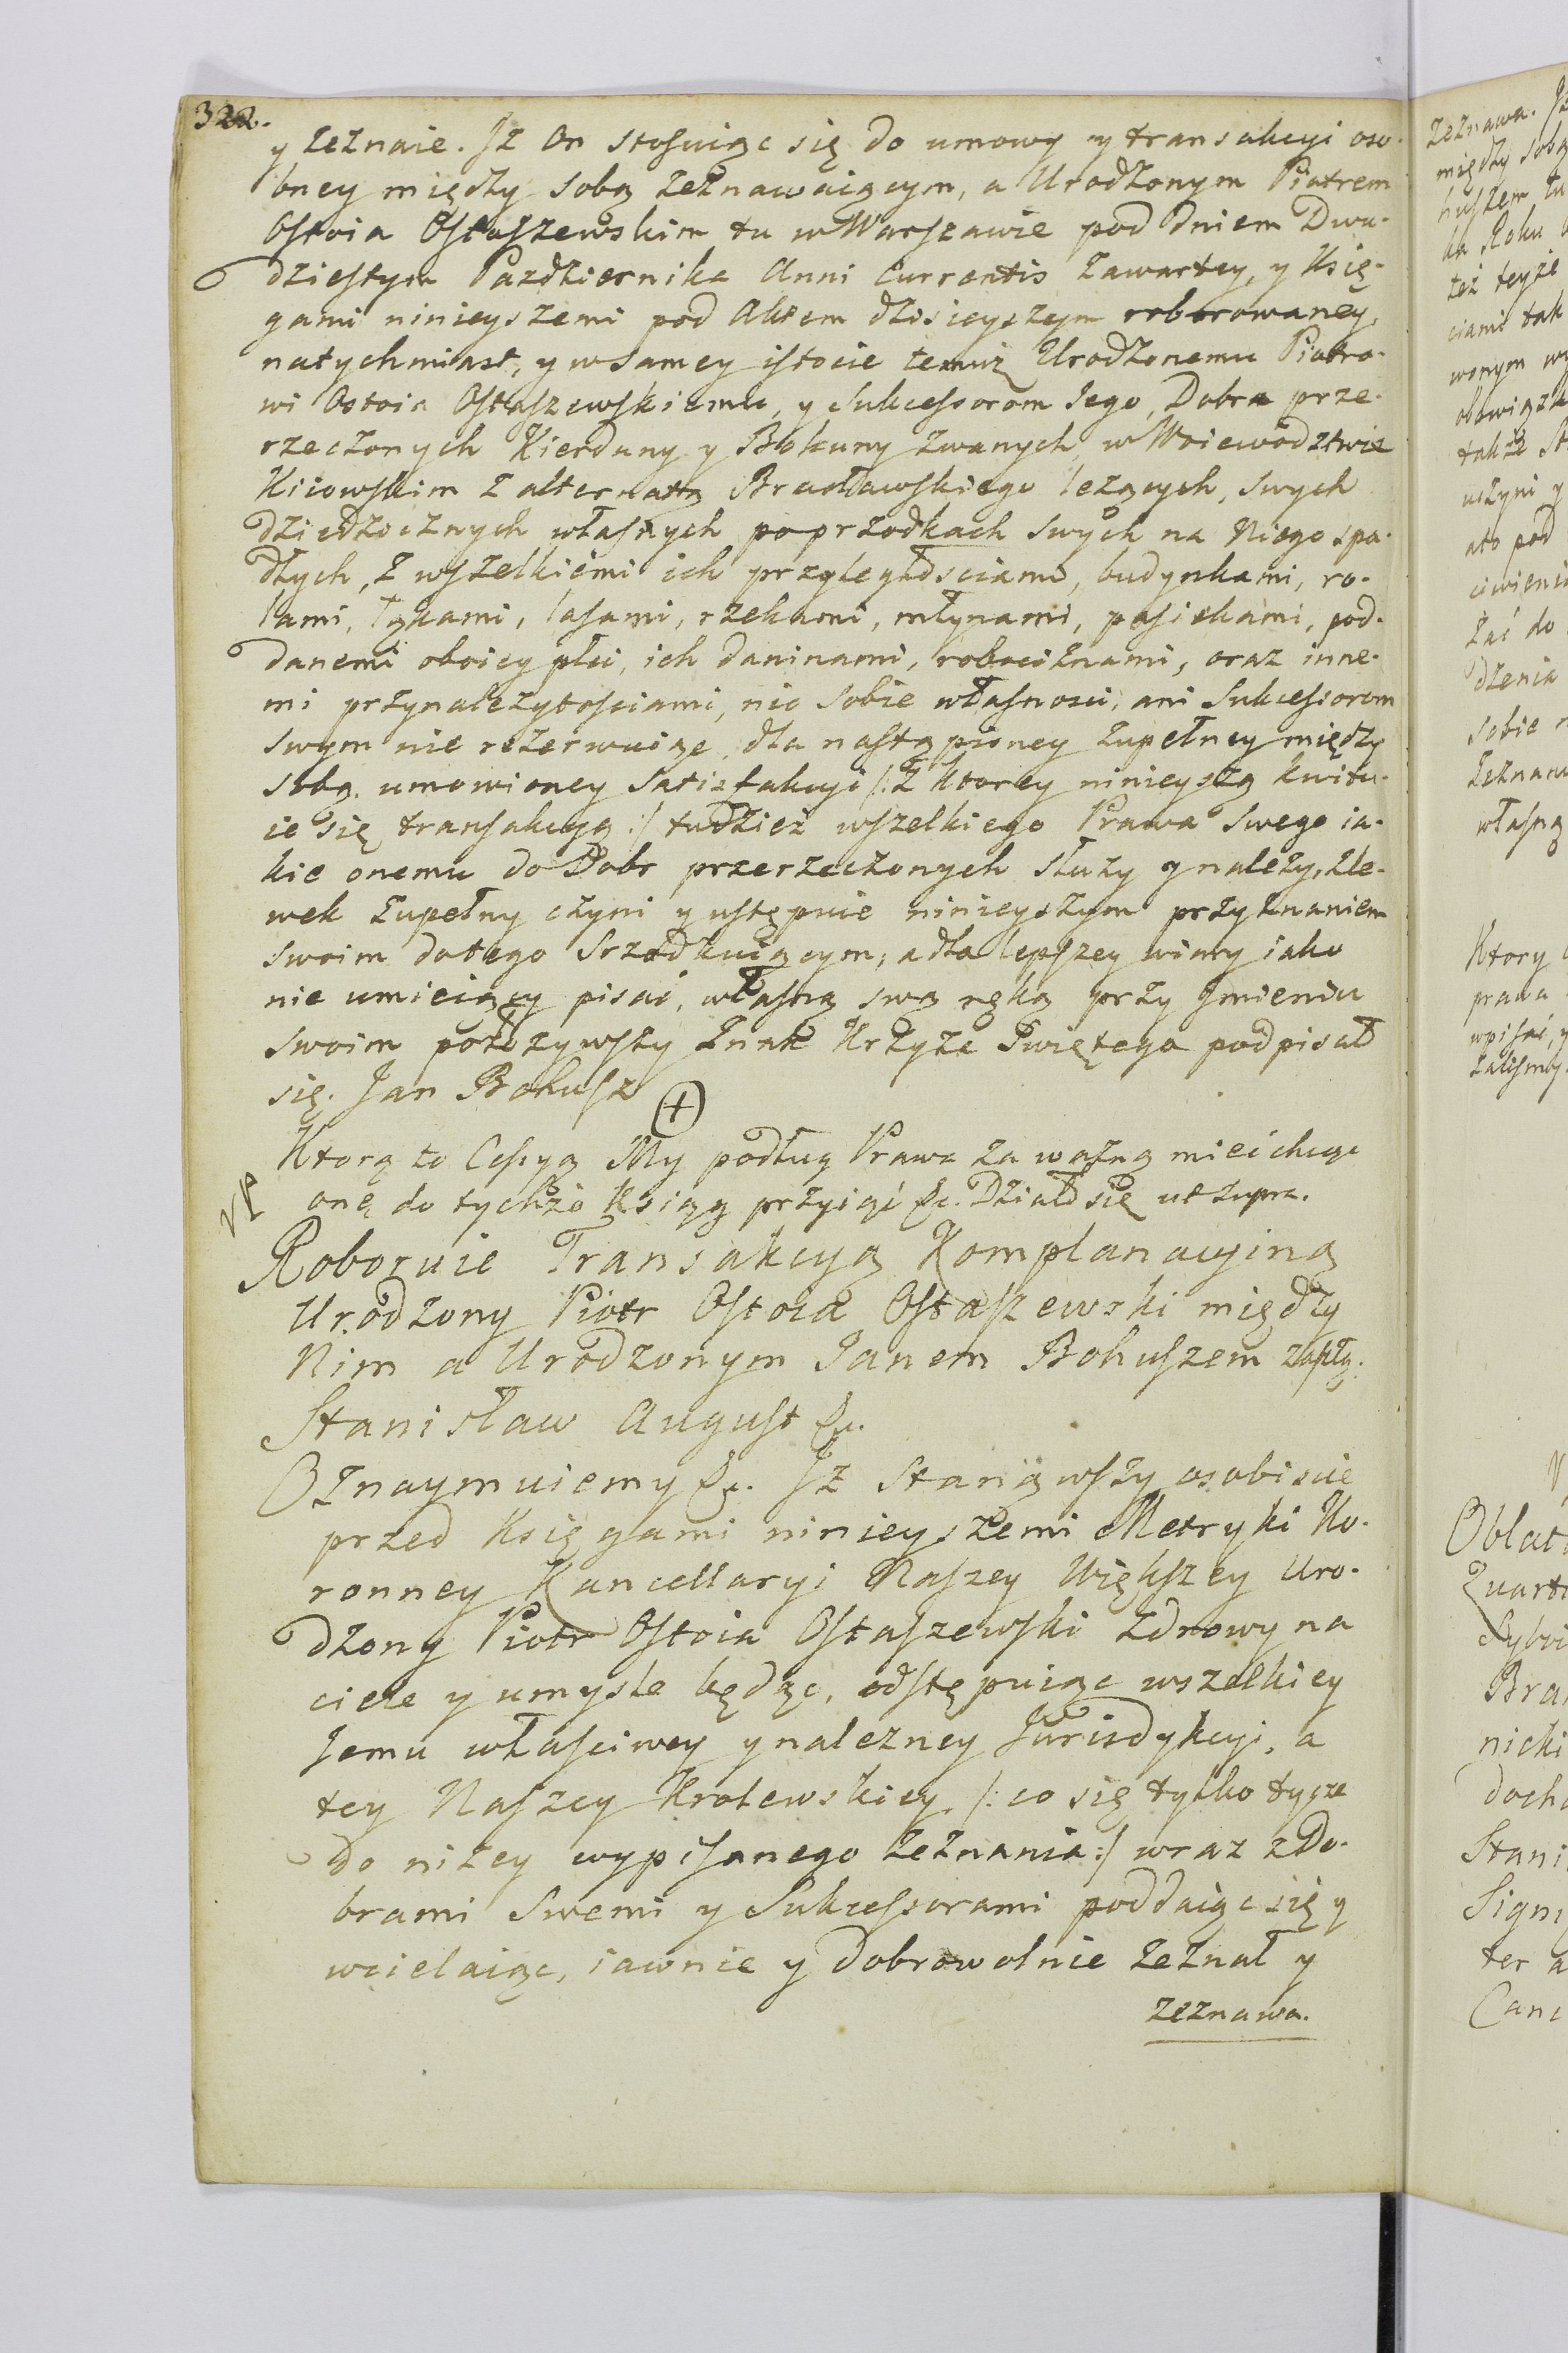 322.
y zeznaie. Jż On stosuiąc się do umowy y transakcyi oso-
bney między sobą zeznawaiącym, a Urodzonym Piotrem
Ostoia Ostaszewskim tu w Warszawie pod Dniem Dwu-
dziestym Pazdziernika Anni Currentis zawartey, y Księ-
gami ninieyszemi pod Aktem dzisieyszym roborowaney,
natychmiast, y w samey istocie temuż Urodzonemu Piotro-
wi Ostoia Ostaszewskiemu, y Sukcessorom Jego, Dobra prze-
rzeczonych Kierduny y Bokuny zwanych, w Woiewodztwie
Kiiowskim z alternatą Bracławskiego leżących, swych
dziedzicznych własnych po przodkach swych na Niego spa-
dłych, z wszelkiemi ich przyległosciami, budynkami, ro-
lami, łąkami, lasami, rzekami, młynami, pasiekami, pod-
danemi oboiey płci, ich daninami, robociznami, oraz inne-
mi przynależytosciami, nic sobie własnosci, ani Sukcessorom
swym nie rezerwuiąc, dla nastąpioney zupełney między
sobą umowioney satisfakcyi /: z ktorey ninieyszą kwitu-
ie się transakcyą :/ tudzież wszelkiego Prawa swego ia-
kie onemu do Dobr przerzeczonych służy y należy, zle-
wek zupełny czyni y ustępuie ninieyszym przyznaniem
swoim do tego srzodkuiącym; a dla lepszey wiary iako
nie umieiący pisać, własną swą ręką przy Jmieniu
swoim położywszy Znak Krzyża Swiętego podpisał
się. Jan Bohusz
+
Ktorą to Cessyą My podług Prawa za ważną mieć chcąc
onę do tychże Ksiąg przyiąć &c. Działo się ut supra.
Roboruie Transakcyą Komplanacyiną
Urodzony Piotr Ostoia Ostaszewski między
Nim a Urodzonym Janem Bohuszem
Stanisław August &c.
Oznaymuiemy &c. Jż Stanąwszy osobiscie
przed Księgami ninieyszemi Metryki Ko-
ronney Kancellaryi Naszey Większey Uro-
dzony Piotr Ostoia Ostaszewski zdrowy na
ciele y umysle będąc, odstępuiąc wszelkiey
Jemu własciwey y należney Jurisdykcyi, a
tey Naszey Krolewskiey /: co się tylko tycze
do niżey wypisanego zeznania :/ wraz z Do-
brami Swemi y Sukcessorami poddaiąc się y
wcielaiąc, iawnie y dobrowolnie zeznał y
zeznawa.
zeznawa. Jż
między sobą
huszem tu
ka Roku
też teyże
ciami tak
wonym
obowiązk
także
uczyni y
ato pod
żać do
dzenia
sobie
zeznanu
własną
Ktory
prawa
wpisać, y
Oblat
Quart
Bra
nicki
doch
Stani
Sign
ter a
Canc